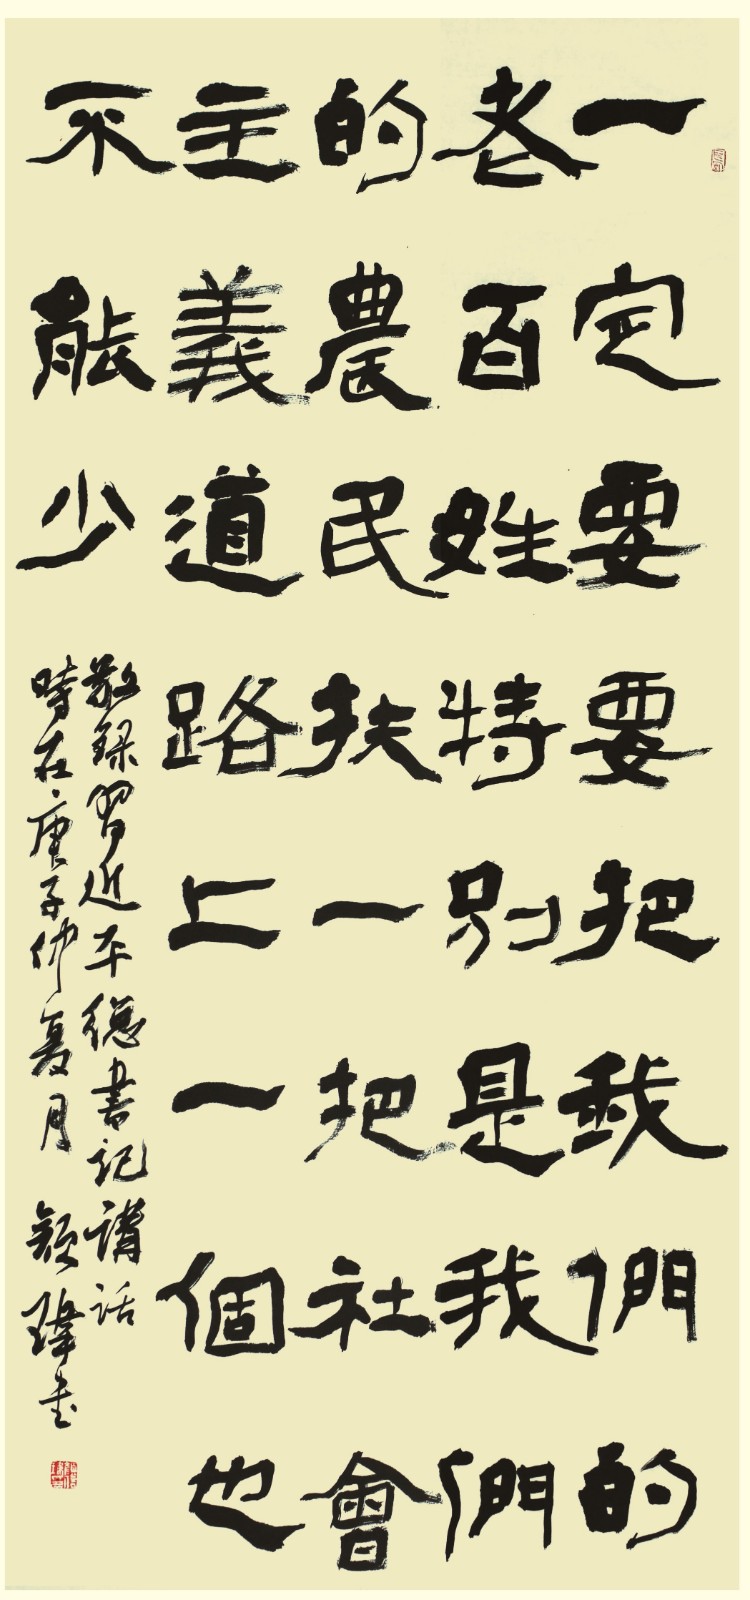 一定要要把我們的
老百姓特別是我們
的農民扶一把社會
主義道路上一個也
不能少
敬録習近平總書記講話
時在庚子仲夏月 瑋書